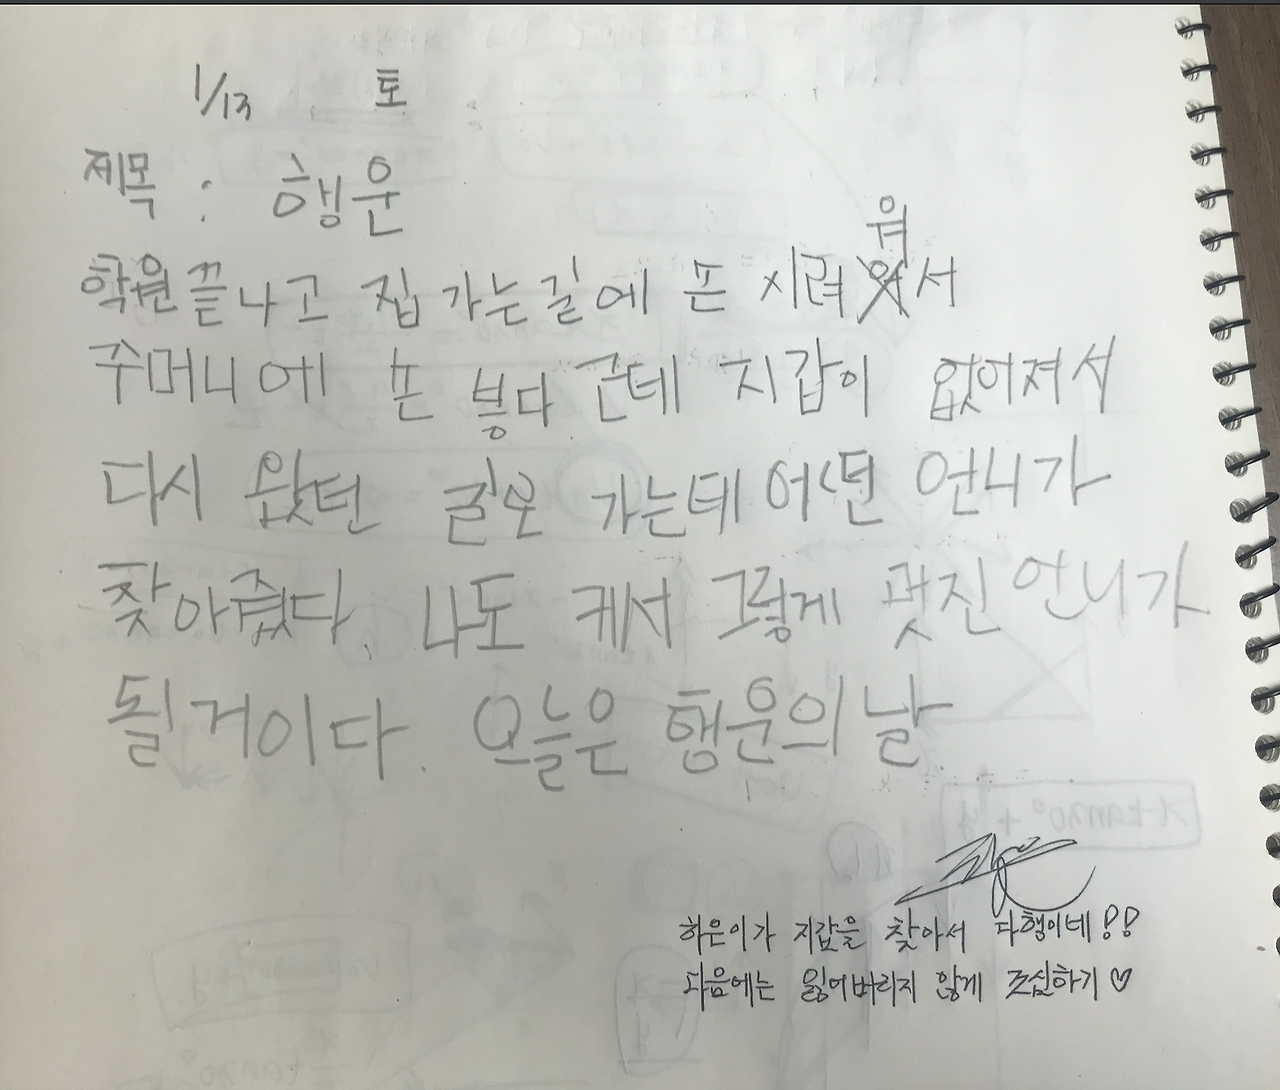 1/13 토
제목 : 행운
학원 끝나고 집 가는길에 손 시려워서
주머니에 손 넣다 근데 지갑이 없어져서
다시 왔던 길로 가는데 어떤 언니가
찾아줬다. 나도 케서 그렇게 멋진 언니가
될거이다. 오늘은 행운의 날
하은이가 지갑을 찾아서 다행이네!!
다음에는 잃어버리지 않게 조심하기♡